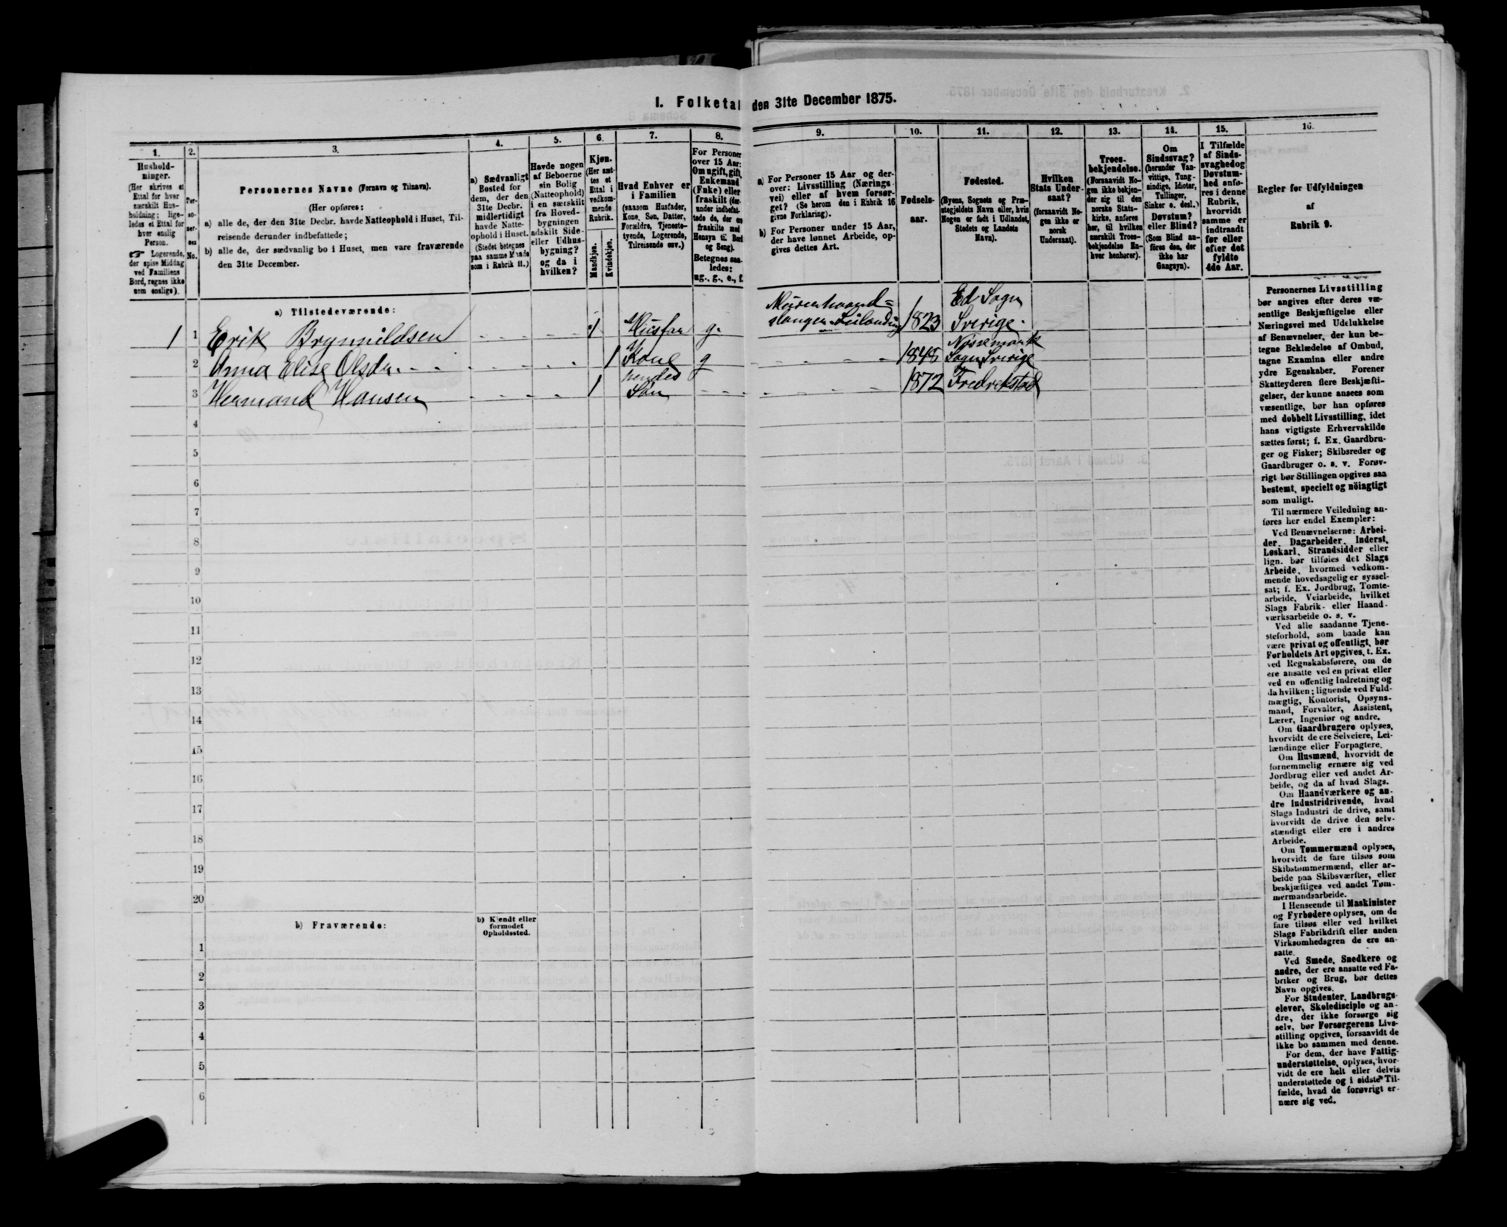 I. Folketal den 31te December 1875.
1.
Hushold-
ninger.
(Her skrives et
Ettal for hver
særskilt Hus-
holdning; lige-
ledes et Ettal for
hver enslig
Person.
☞ Logerende,
der spise Middag
ved Familiens
Bord, regnes ikke
som enslige).
2.
No.
3.
Personernes Navne (Fornavn og Tilnavn).
(Her opføres:
a) alle de, der den 31te Decbr. havde Natteophold i Huset, Til-
reisende derunder indbefattede;
b) alle de, der sædvanlig bo i Huset, men vare fraværende
den 31te December.
4.
a) Sædvanligt
Bosted for
dem, der den
31te Decbr.
midlertidigt
havde Natte-
ophold i Huset.
(Stedet betegnes
paa samme Maade
som i Rubrik 11.)
5.
Havde nogen
af Beboerne
sin Bolig
(Natteophold)
i en særskilt
fra Hoved-
bygningen
adskilt Side-
eller Udhus-
bygning?
og da i
hvilken?
6.
Kjøn.
(Her sæt-
tes et
Ettal i
vedkom-
mende
Rubrik.
Mandkjøn.
Kvindekjøn.
7.
Hvad Enhver er
i Familien
(saasom Husfader,
Kone, Søn, Datter,
Forældre, Tjeneste-
tyende, Logerende,
Tilreisende osv.)
8.
For Personer
over 15 Aar:
Om ugift, gift,
Enkemand
(Enke) eller
fraskilt
Betegnes saa-
ledes:
ug., g., e., f.
9.
a) For Personer 15 Aar og der-
over: Livsstilling (Nærings-
vei) eller af hvem forsør-
get? (Se herom den i Rubrik 16
givne Forklaring).
b) For Personer under 15 Aar,
der have lønnet Arbeide, op-
gives dettes Art.
10.
Fødsels-
aar.
11.
Fødested.
(Byens, Sognets og Præ-
stegjeldets Navn eller, hvis
Nogen er født i Udlandet,
Stedets og Landets
Navn).
12.
Hvilken
Stats Under-
saat?
(forsaavidt No-
gen ikke er
norsk
Undersaat).
13.
Troes-
bekjendelse.
(Forsaavidt No-
gen ikke bekjen-
der sig til den
norske Stats-
kirke, anføres
her, til hvilken
særskilt Troes-
bekjendelse En-
hver henhører).
14.
Om
Sindssvag?
(herunder Van-
vittige, Tung-
sindige, Idioter,
Tullinger,
Sinker o. desl.)
Døvstum?
eller Blind?
(Som Blind an-
føres den, der
ikke har
Gangsyn).
15.
I Tilfælde
af Sinds-
svaghed og
Døvstum-
hed anfø-
res i denne
Rubrik,
hvorvidt
samme er
indtraadt
før eller
efter det
fyldte
4de Aar.
16.
Regler for Udfyldningen
af
Rubrik 9.
a) Tilstedeværende:
1 1 Erik Brynnildsen 1 Husfar g. 1823 Ed Sogn Sverige.
2 Anna Elise Olsdr 1 Kone g 1848 Sogn Sverige
3 Hermand Hansen 1 hendes Søn 1872 Fredrikstad
4
5
6
7
8
9
10
11
12
13
14
15
16
17
18
19
20
b) Fraværende:
b) Kjendt eller
formodet
Opholdssted.
1
2
3
4
5
6
Personernes Livsstilling
bør angives efter deres væ-
sentlige Beskjæftigelse eller
Næringsvei med Udelukkelse
af Benævnelser, der kun be-
tegne Beklædelse af Ombud,
tagne Examina eller andre
ydre Egenskaber. Forener
Skatteyderen flere Beskjæfti-
gelser, der kunne ansees som
væsentlige, bør han opføres
med dobbelt Livsstilling, idet
hans vigtigste Erhvervskilde
sættes først; f. Ex. Gaardbru-
ger og Fisker; Skibsreder og
Gaardbruger o. s. v. Forøv-
rigt bør Stillingen opgives saa
bestemt, specielt og nøiagtigt
som muligt.
Til nærmere Veiledning an-
føres her endel Exempler:
Ved Benævnelserne: Arbei-
der, Dagarbeider, Inderst,
Løskarl, Strandsidder eller
lign. bør tilføies det Slags
Arbeide, hvormed vedkom-
mende hovedsagelig er syssel-
sat; f. Ex. Jordbrug, Tomte-
arbeide, Veiarbeide, hvilket
Slags Fabrik- eller Haand-
værksarbeide o. s. v.
Ved alle saadanne Tjene-
steforhold, som baade kan
være privat og offentligt, bør
Forholdets Art opgives, f. Ex.
ved Regnskabsførere, om de
ere ansatte ved en privat eller
ved en offentlig Indretning og
da hvilken; lignende ved Fuld-
mægtig, Kontorist, Opsyns-
mand, Forvalter, Assistent,
Lærer, Ingeniør og andre.
Om Gaardbrugere oplyses,
hvorvidt de ere Selveiere, Lei-
lændinge eller Forpagtere.
Om Husmænd, hvorvidt de
fornemmelig ernære sig ved
Jordbrug eller ved andet Ar-
beide, og da af hvad Slags.
Om Haandværkere og an-
dre Industridrivende, hvad
Slags Industri de drive, samt
hvorvidt de drive den selv-
stændigt eller ere i andres
Arbeide.
Om Tømmermænd oplyses,
hvorvidt de fare tilsøs som
Skibstømmermænd, eller ar-
beide paa Skibsværfter, eller
beskjæftiges ved andet Tøm-
mermandsarbeide.
I Henseende til Maskinister
og Fyrbødere oplyses, om de
fare tilsøs eller ved hvilket
Slags Fabrikdrift eller anden
Virksomhedsgren de ere an-
satte.
Ved Smede, Snedkere og
andre, der ere ansatte ved Fa-
briker og Brug, bør dettes
Navn opgives.
For Studenter, Landbrugs-
elever, Skoledisciple og an-
dre, der ikke forsørge sig
selv, bør Forsørgerens Livs-
stilling opgives, forsaavidt de
ikke bo sammen med denne.
For dem, der have Fattig-
understøttelse, oplyses, hvor-
vidt de ere helt eller delvis
understøttede og i sidste Til-
fælde, hvad de forøvrigt er-
nære sig ved.